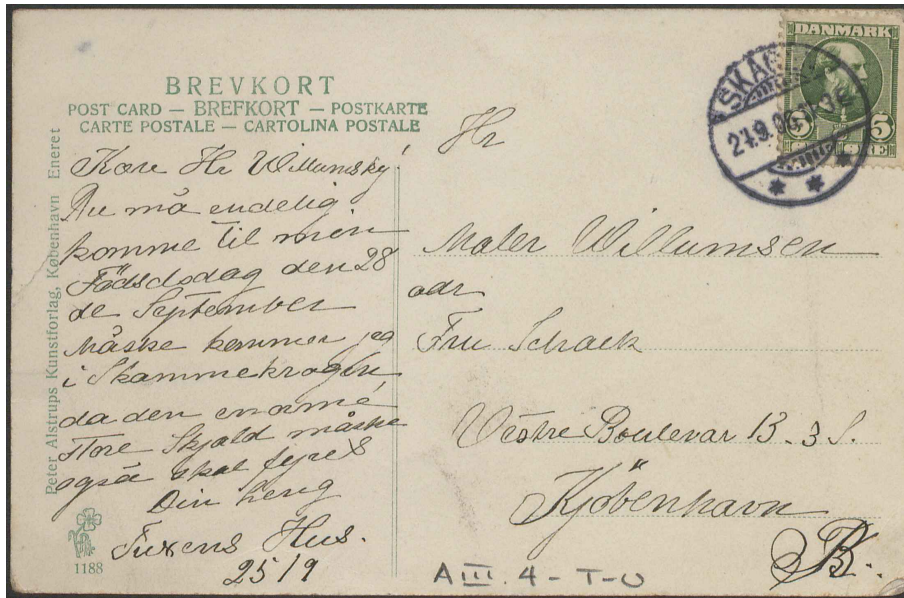 BREVKORT
POST CARD — BREFKORT — POSTKARTE
CARTE POSTALE — CARTOLINA POSTALE
Peter Alstrups Kunstforlag, København Eneret
1188
Kære Hr Willumsky!
Du må endelig
komme til min
Födsdsdag den 28
de September
Måske kommer jeg
i Skammekrogen
da den enorme
Store Skjold måske
også skal fyres
Din heng
Tuxens Hus.
25/9
DANMARK
5 5
ØRE
SKAGEN
Hr
Maler Willumsen
adr
Fru Schack
Vestre Boulevar 13 - 3 S.
Kjöbenhavn
B.
A III. 4 - T-U